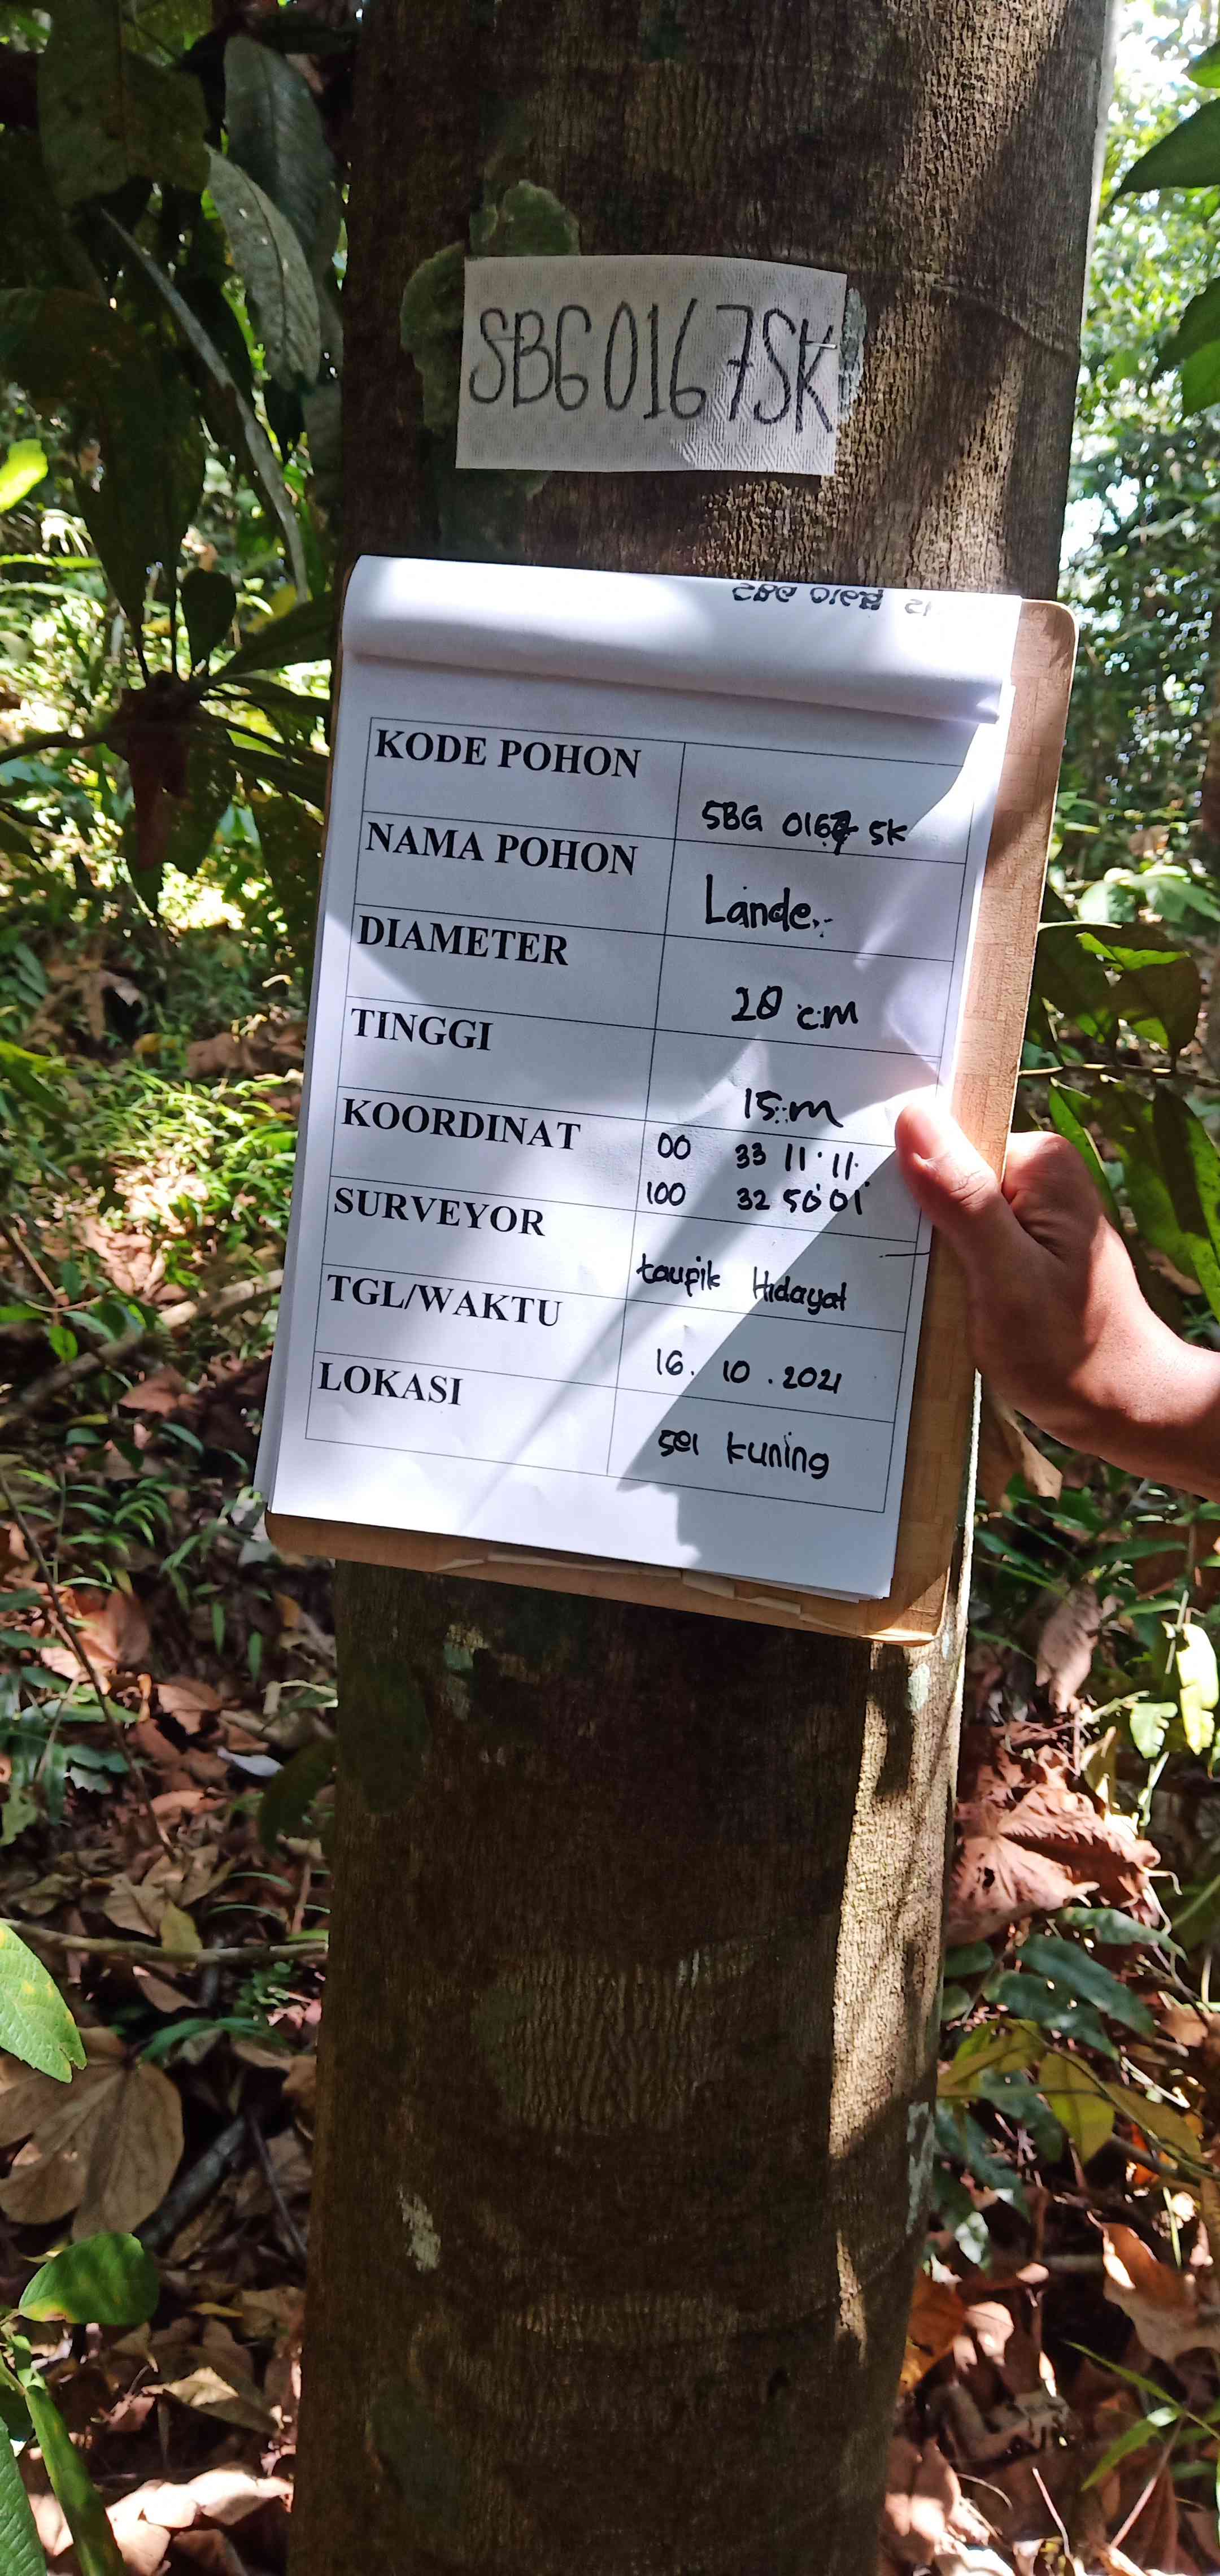 SBG0167SK
KODE POHON
SBG 0167 SK
NAMA POHON
Lande
DIAMETER
28 cm
TINGGI
15 m
KOORDINAT
00 33 11 11
100 32 50 01
SURVEYOR
taupik Hidayat
TGL/WAKTU
16. 10 . 2021
LOKASI
sei kuning